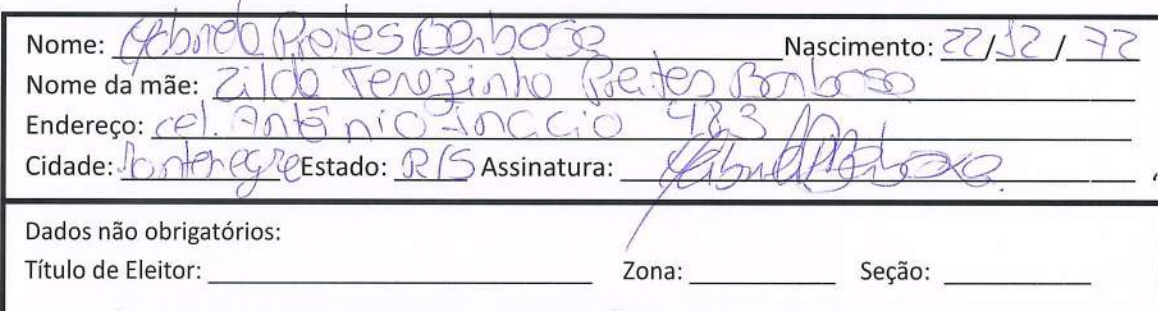 Nome: Gabriela Preites Barbosa Nascimento: 22/12/72
Nome da mãe: Zilda Terezinha Preites Barbosa
Endereço: cel. Antônio Inacio 483
Cidade: Montenegro Estado: R/S Assinatura:
Dados não obrigatórios:
Título de Eleitor: Zona: Seção: